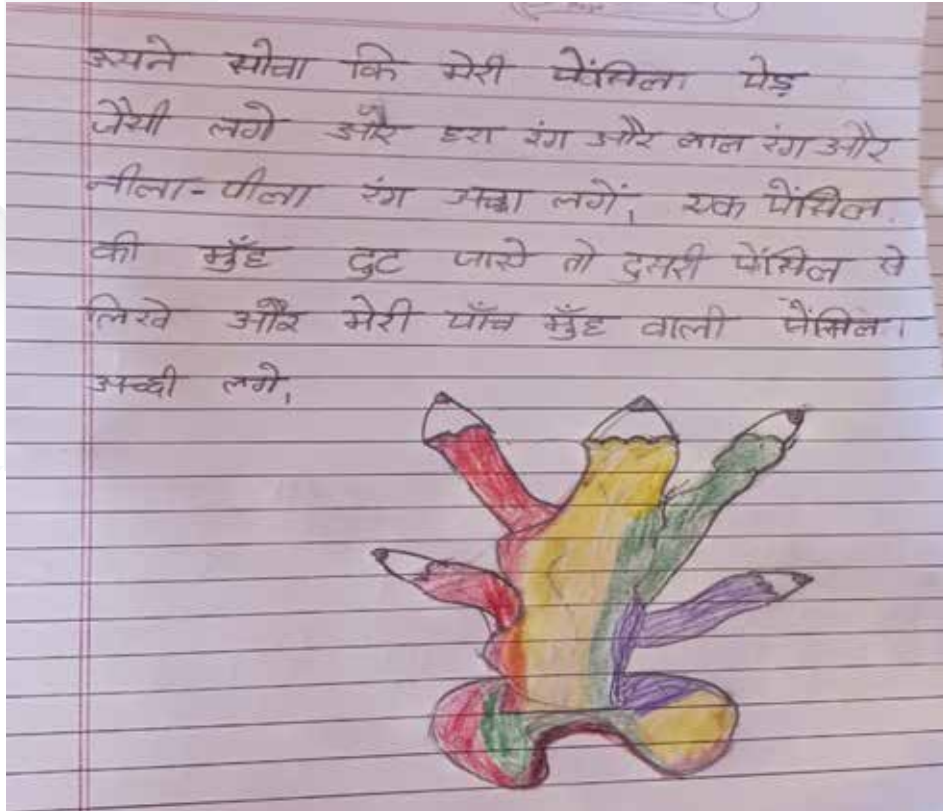 उसने सोचा कि मेरी पेंसिल पेड़
जैसी लगे और हरा रंग और लाल रंग और
नीला-पीला रंग अच्छा लगें, एक पेंसिल
की मुँह टुट जासे तो दुसरी पेंसिल से
लिखे और मेरी पाँच मुँह वाली पेंसिल।
अच्छी लगे,